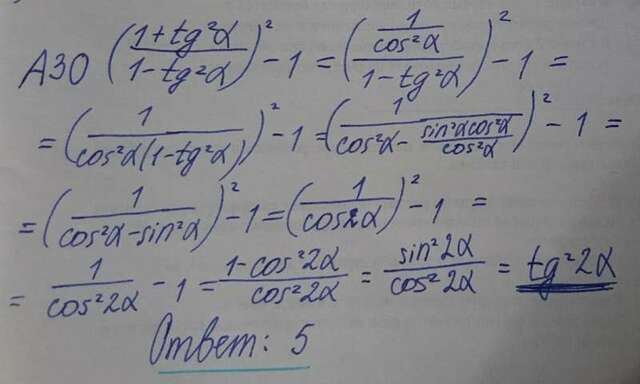 А30 ((1+tg²α)/(1-tg²α))² - 1 = ((1/cos²α)/(1-tg²α))² - 1 =
= (1/(cos²α(1-tg²α)))² - 1 = (1/(cos²α - (sin²α cos²α)/cos²α))² - 1 =
= (1/(cos²α - sin²α))² - 1 = (1/(cos2α))² - 1 =
= 1/(cos²2α) - 1 = (1-cos²2α)/(cos²2α) = (sin²2α)/(cos²2α) = tg²2α
Ответ: 5